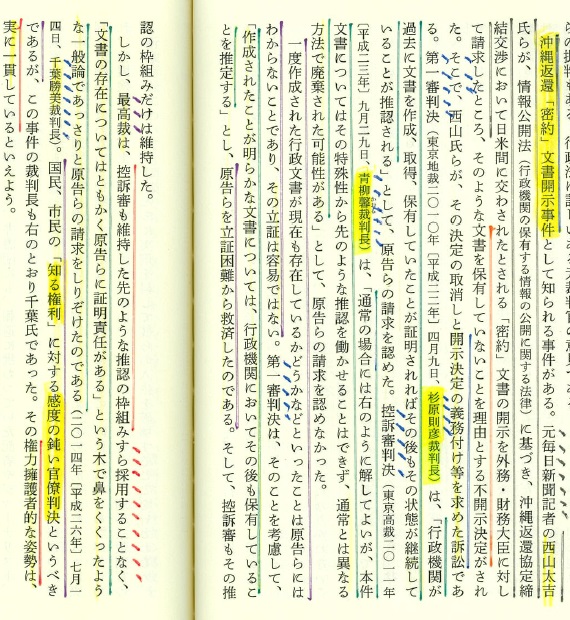 沖縄返還「密約」文書開示事件として知られる事件がある。元毎日新聞記者の西山太吉
氏らが、情報公開法（行政機関の保有する情報の公開に関する法律）に基づき、沖縄返還協定締
結交渉において日米間に交わされたとされる「密約」文書の開示を外務・財務大臣に対し
て請求したところ、そのような文書を保有していないことを理由とする不開示決定がされ
た。そこで、西山氏らが、その決定の取消しと開示決定の義務付け等を求めた訴訟であ
る。第一審判決（東京地裁二〇一〇年〔平成二二年〕四月九日、杉原則彦裁判長）は、「行政機関が
過去に文書を作成、取得、保有していたことが証明されればその後もその状態が継続して
いることが推認される」として、原告らの請求を認めた。控訴審判決（東京高裁二〇一一年
〔平成二三年〕九月二九日、青柳馨裁判長）は、「通常の場合には右のように解してよいが、本件
文書についてはその特殊性から先のような推認を働かせることはできず、通常とは異なる
方法で廃棄された可能性がある」として、原告らの請求を認めなかった。
一度作成された行政文書が現在も存在しているかどうかなどといったことは原告らには
わからないことであり、その立証は容易ではない。第一審判決は、そのことを考慮して、
「作成されたことが明らかな文書については、行政機関においてその後も保有しているこ
とを推定する」とし、原告らを立証困難から救済したのである。そして、控訴審もその推
認の枠組みだけは維持した。
しかし、最高裁は、控訴審も維持した先のような推認の枠組みすら採用することなく、
「文書の存在についてはともかく原告らに証明責任がある」という木で鼻をくくったよう
な一般論であっさりと原告らの請求をしりぞけたのである（二〇一四年〔平成二六年〕七月一
四日、千葉勝美裁判長）。国民、市民の「知る権利」に対する感度の鈍い官僚判決というべき
であるが、この事件の裁判長も右のとおり千葉氏であった。その権力擁護者的な姿勢は、
実に一貫しているといえよう。